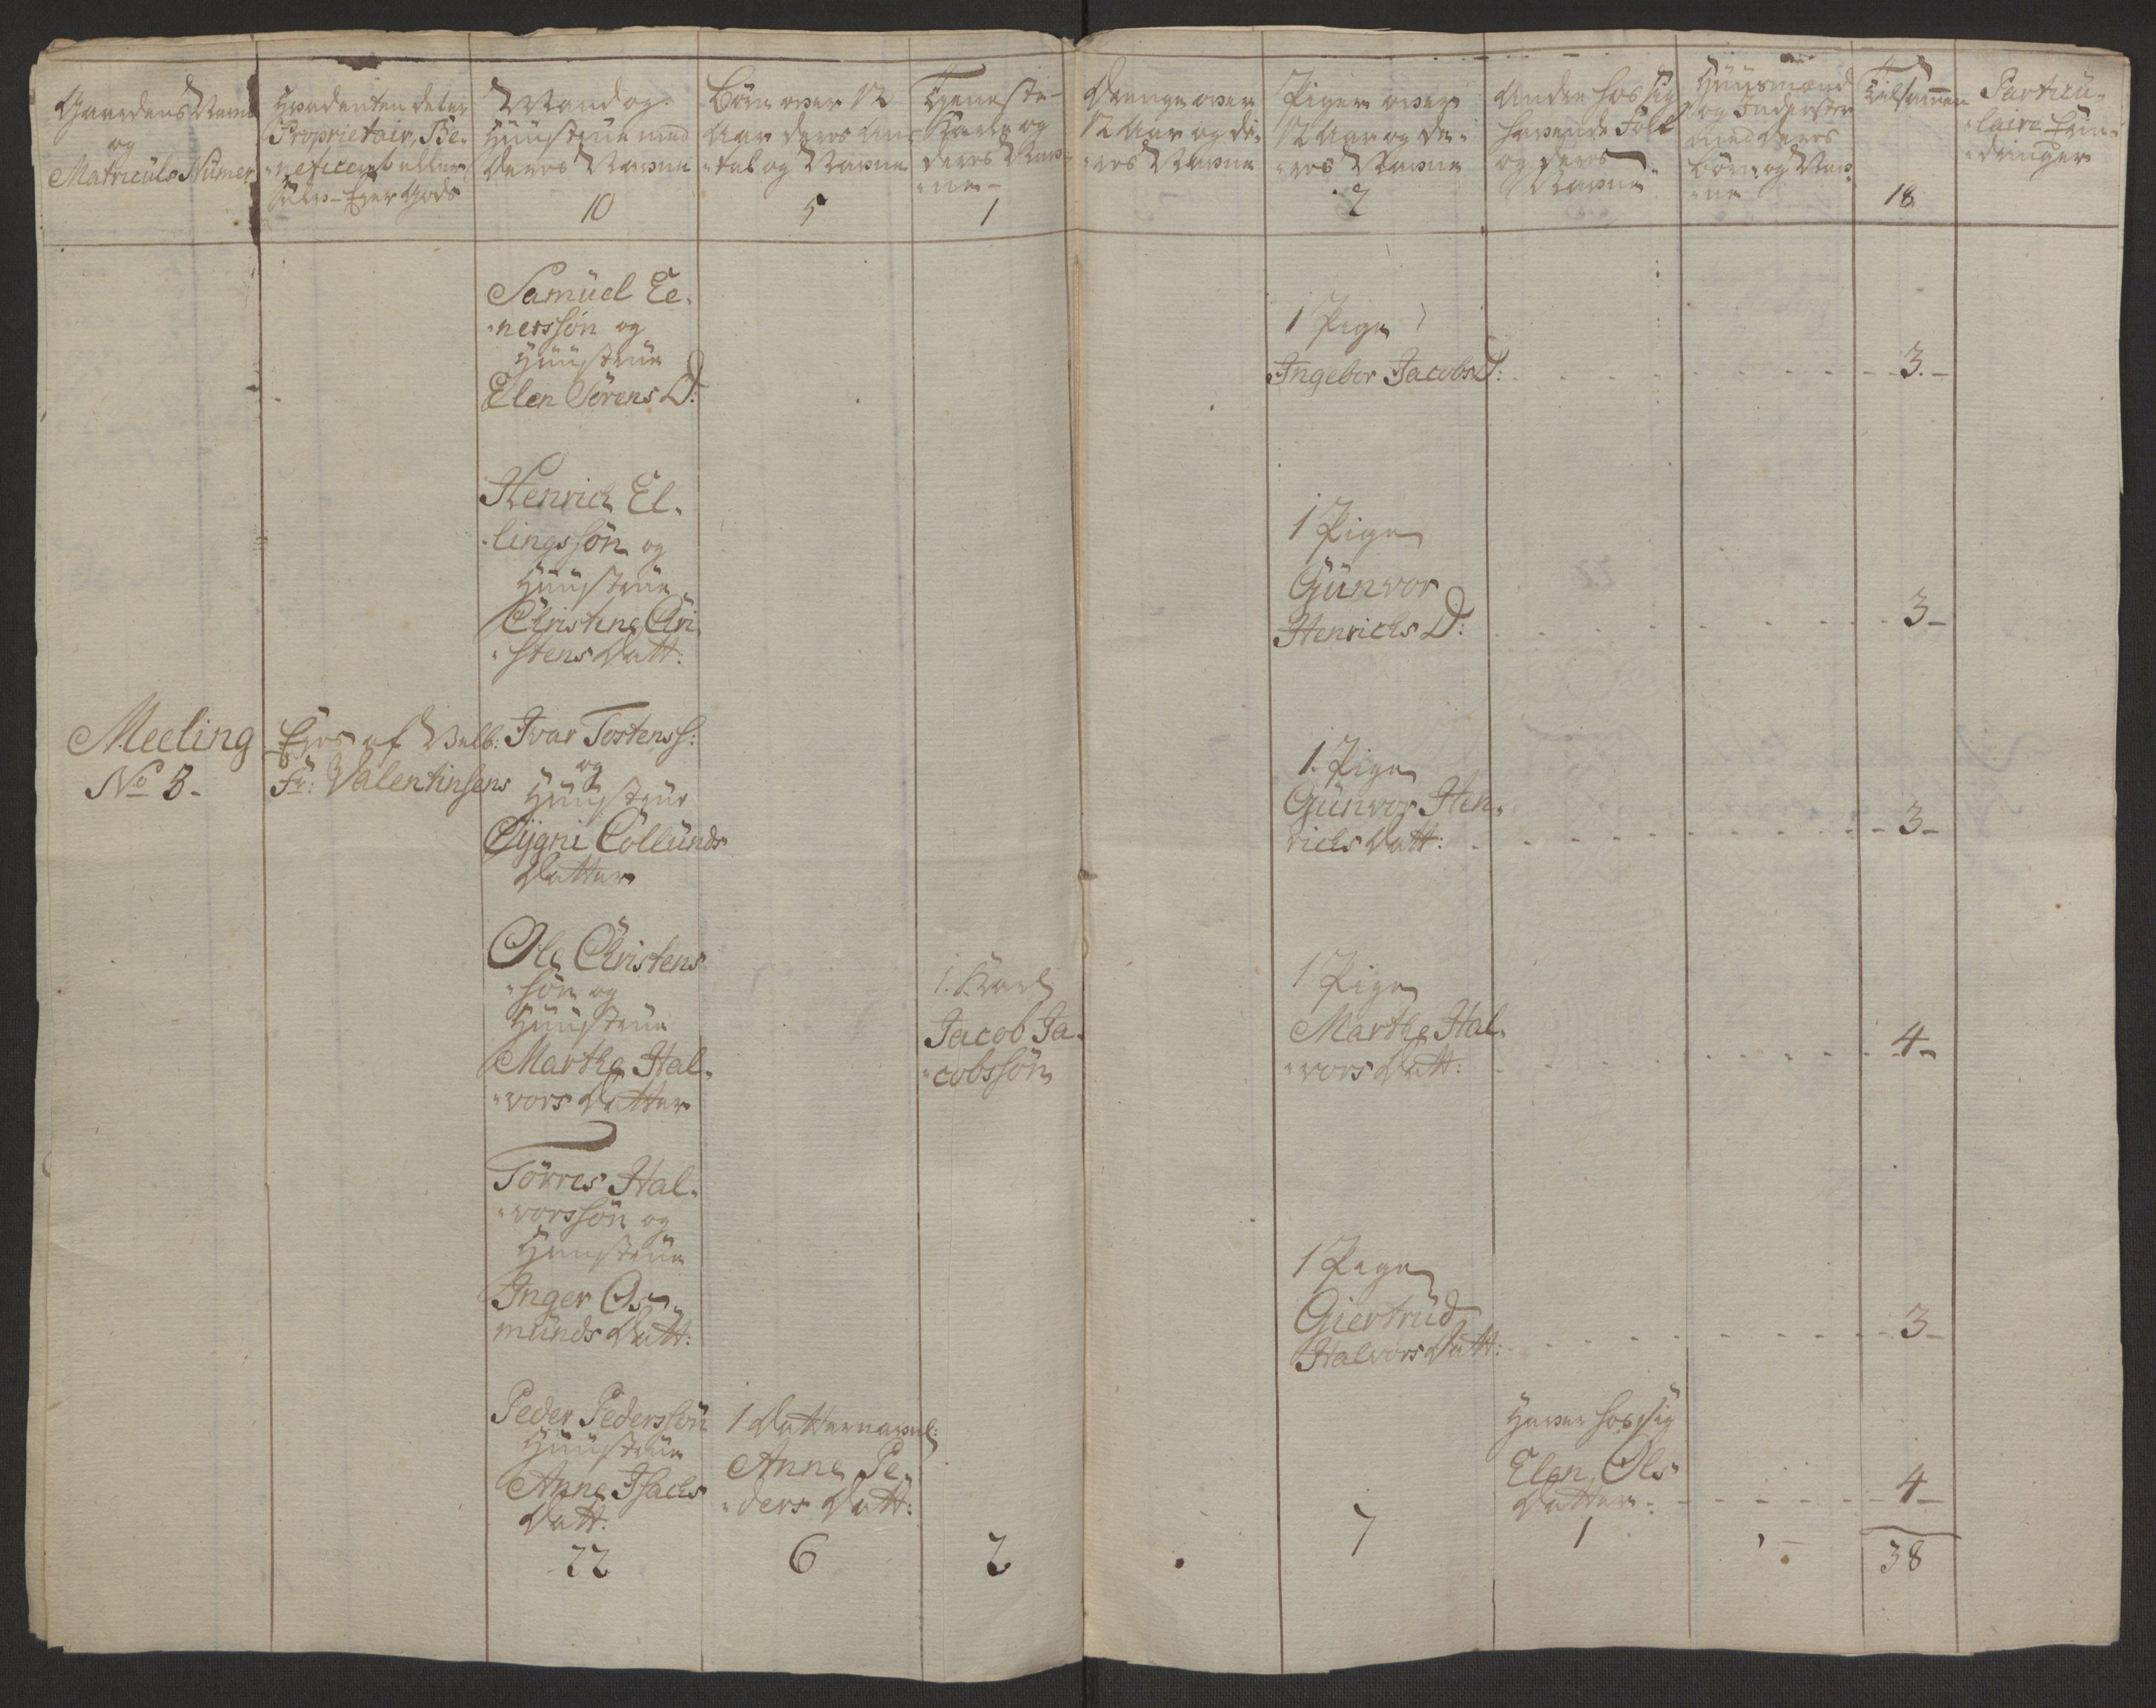 Gaardens Navne
og
Matriculs Numer
Hvadenten det er
Proprietair, Be-
neficeret eller
Selv-Ejer Gods
Mand og
Huustrue med
deres Navne
10
Børn over 12
Aar deres An-
tal og Navne
5
Tjeneste-
Karle og
deres Nav-
ne
1
Drenge over
12 Aar og de-
res Navne
Piger over
12 Aar og de-
res Navne
2
Andre hos sig
havende Folk
og deres
Navne
Huusmænd
og Inderster
med deres
Børn og Nav-
ne
Tilsammen
18
Particu-
laire Erin-
dringer
Samuel Ee-
nerssøn og
Huustrue
Elen Sørens D:
1 Pige
Ingebor Jacobs D:
3
Henrich El-
lingssøn og
Huustrue
Christine Chri
stens Datt:
1 Pige
Gunvor
Henrichs D:
3
Meeling
No 3
Ejes af Velb:
Fr: Valentinsens
Ivar Tostenss:
og
Huustrue
Sygni Collunds
Datter
1 Pige
Gunvor Hen-
richs Datt:
3
Ole Christens
søn og
Huustrue
Marthe Hal-
vors Datter
1. Karl
Jacob Ja-
cobssøn
1 Pige
Marthe Hal-
vors Datt:
4
Tørres Hal-
vorssøn og
Huustrue
Inger Os-
munds Datt:
1 Pige
Giertrud
Halvors Datt:
3
Peder Pederssøn
Huustrue
Anne Isachs
Datt:
1 Datter navnl:
Anne Pe-
ders Datt:
Haver hos sig
Elen Ols
Datter
4
22
6
2
7
1
38